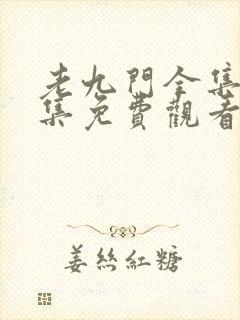 老九門全集
集免費觀看
姜絲紅糖